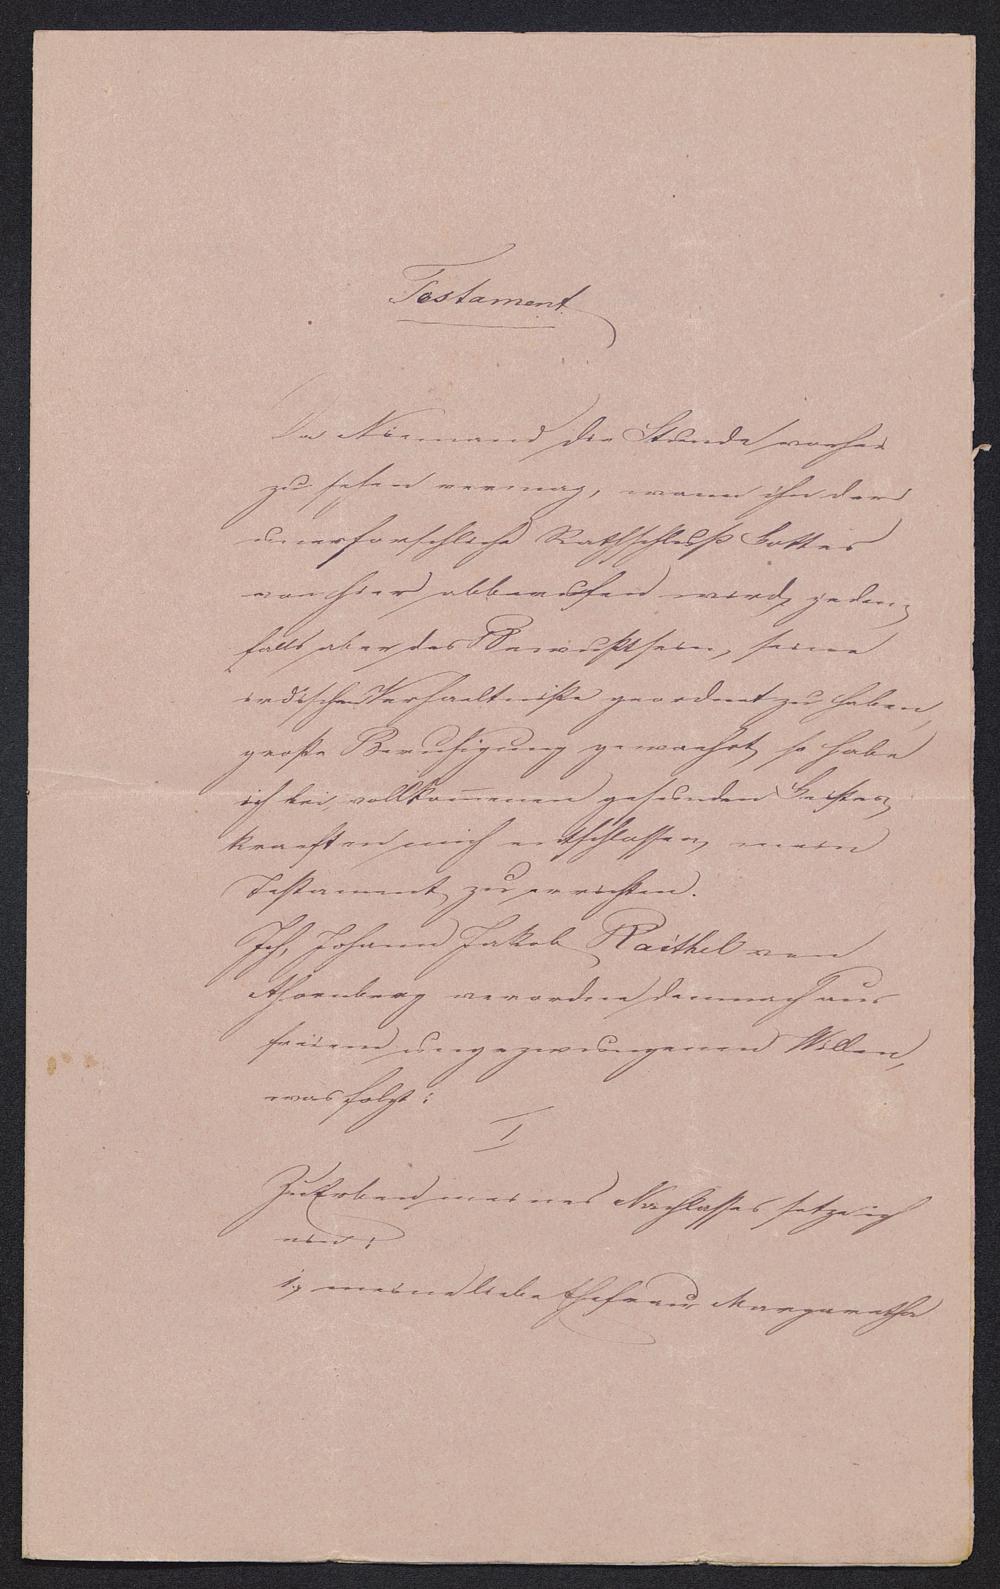 Testament
Da Niemand die Stunde vorher
zu sehen vermag, wann ihn der
unerforschliche Rathschluß Gottes
von hier abberufen wird, jeden-
falls aber das Bewußtsein, seine
irdischen Verhaeltniße geordnet zu haben,
große Beruhigung gewaehrt, so habe
ich bei vollkom̄enen gesunden Geistes-
kraeften mich entschlossen, mein
Testament zu errichten.
Ich, Johann Jakob Raithel von
Ahornberg verordne demnach aus
freiem ungezwungenen Willen,
was folgt:
I
Zu Erben meines Nachlasses setze ich
ein:
1, meine liebe Ehefrau Margaretha